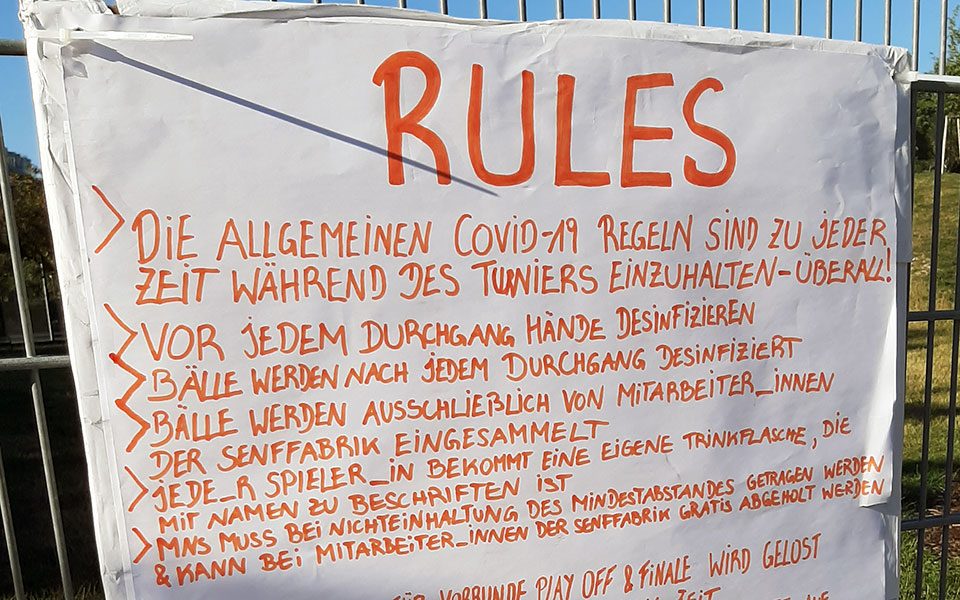 RULES
> DIE ALLGEMEINEN COVID-19 REGELN SIND ZU JEDER
ZEIT WÄHREND DES TURNIERS EINZUHALTEN - ÜBERALL!
> VOR JEDEM DURCHGANG HÄNDE DESINFIZIEREN
> BÄLLE WERDEN NACH JEDEM DURCHGANG DESINFIZIERT
> BÄLLE WERDEN AUSSCHLIEßLICH VON MITARBEITER_INNEN
DER SENFFABRIK EINGESAMMELT
> JEDE_R SPIELER_IN BEKOMMT EINE EIGENE TRINKFLASCHE, DIE
MIT NAMEN ZU BESCHRIFTEN IST
> MNS MUSS BEI NICHTEINHALTUNG DES MINDESTABSTANDES GETRAGEN WERDEN
& KANN BEI MITARBEITER_INNEN DER SENFFABRIK GRATIS ABGEHOLT WERDEN
FÜR VORRUNDE PLAY OFF & FINALE WIRD GELOST
ZEIT